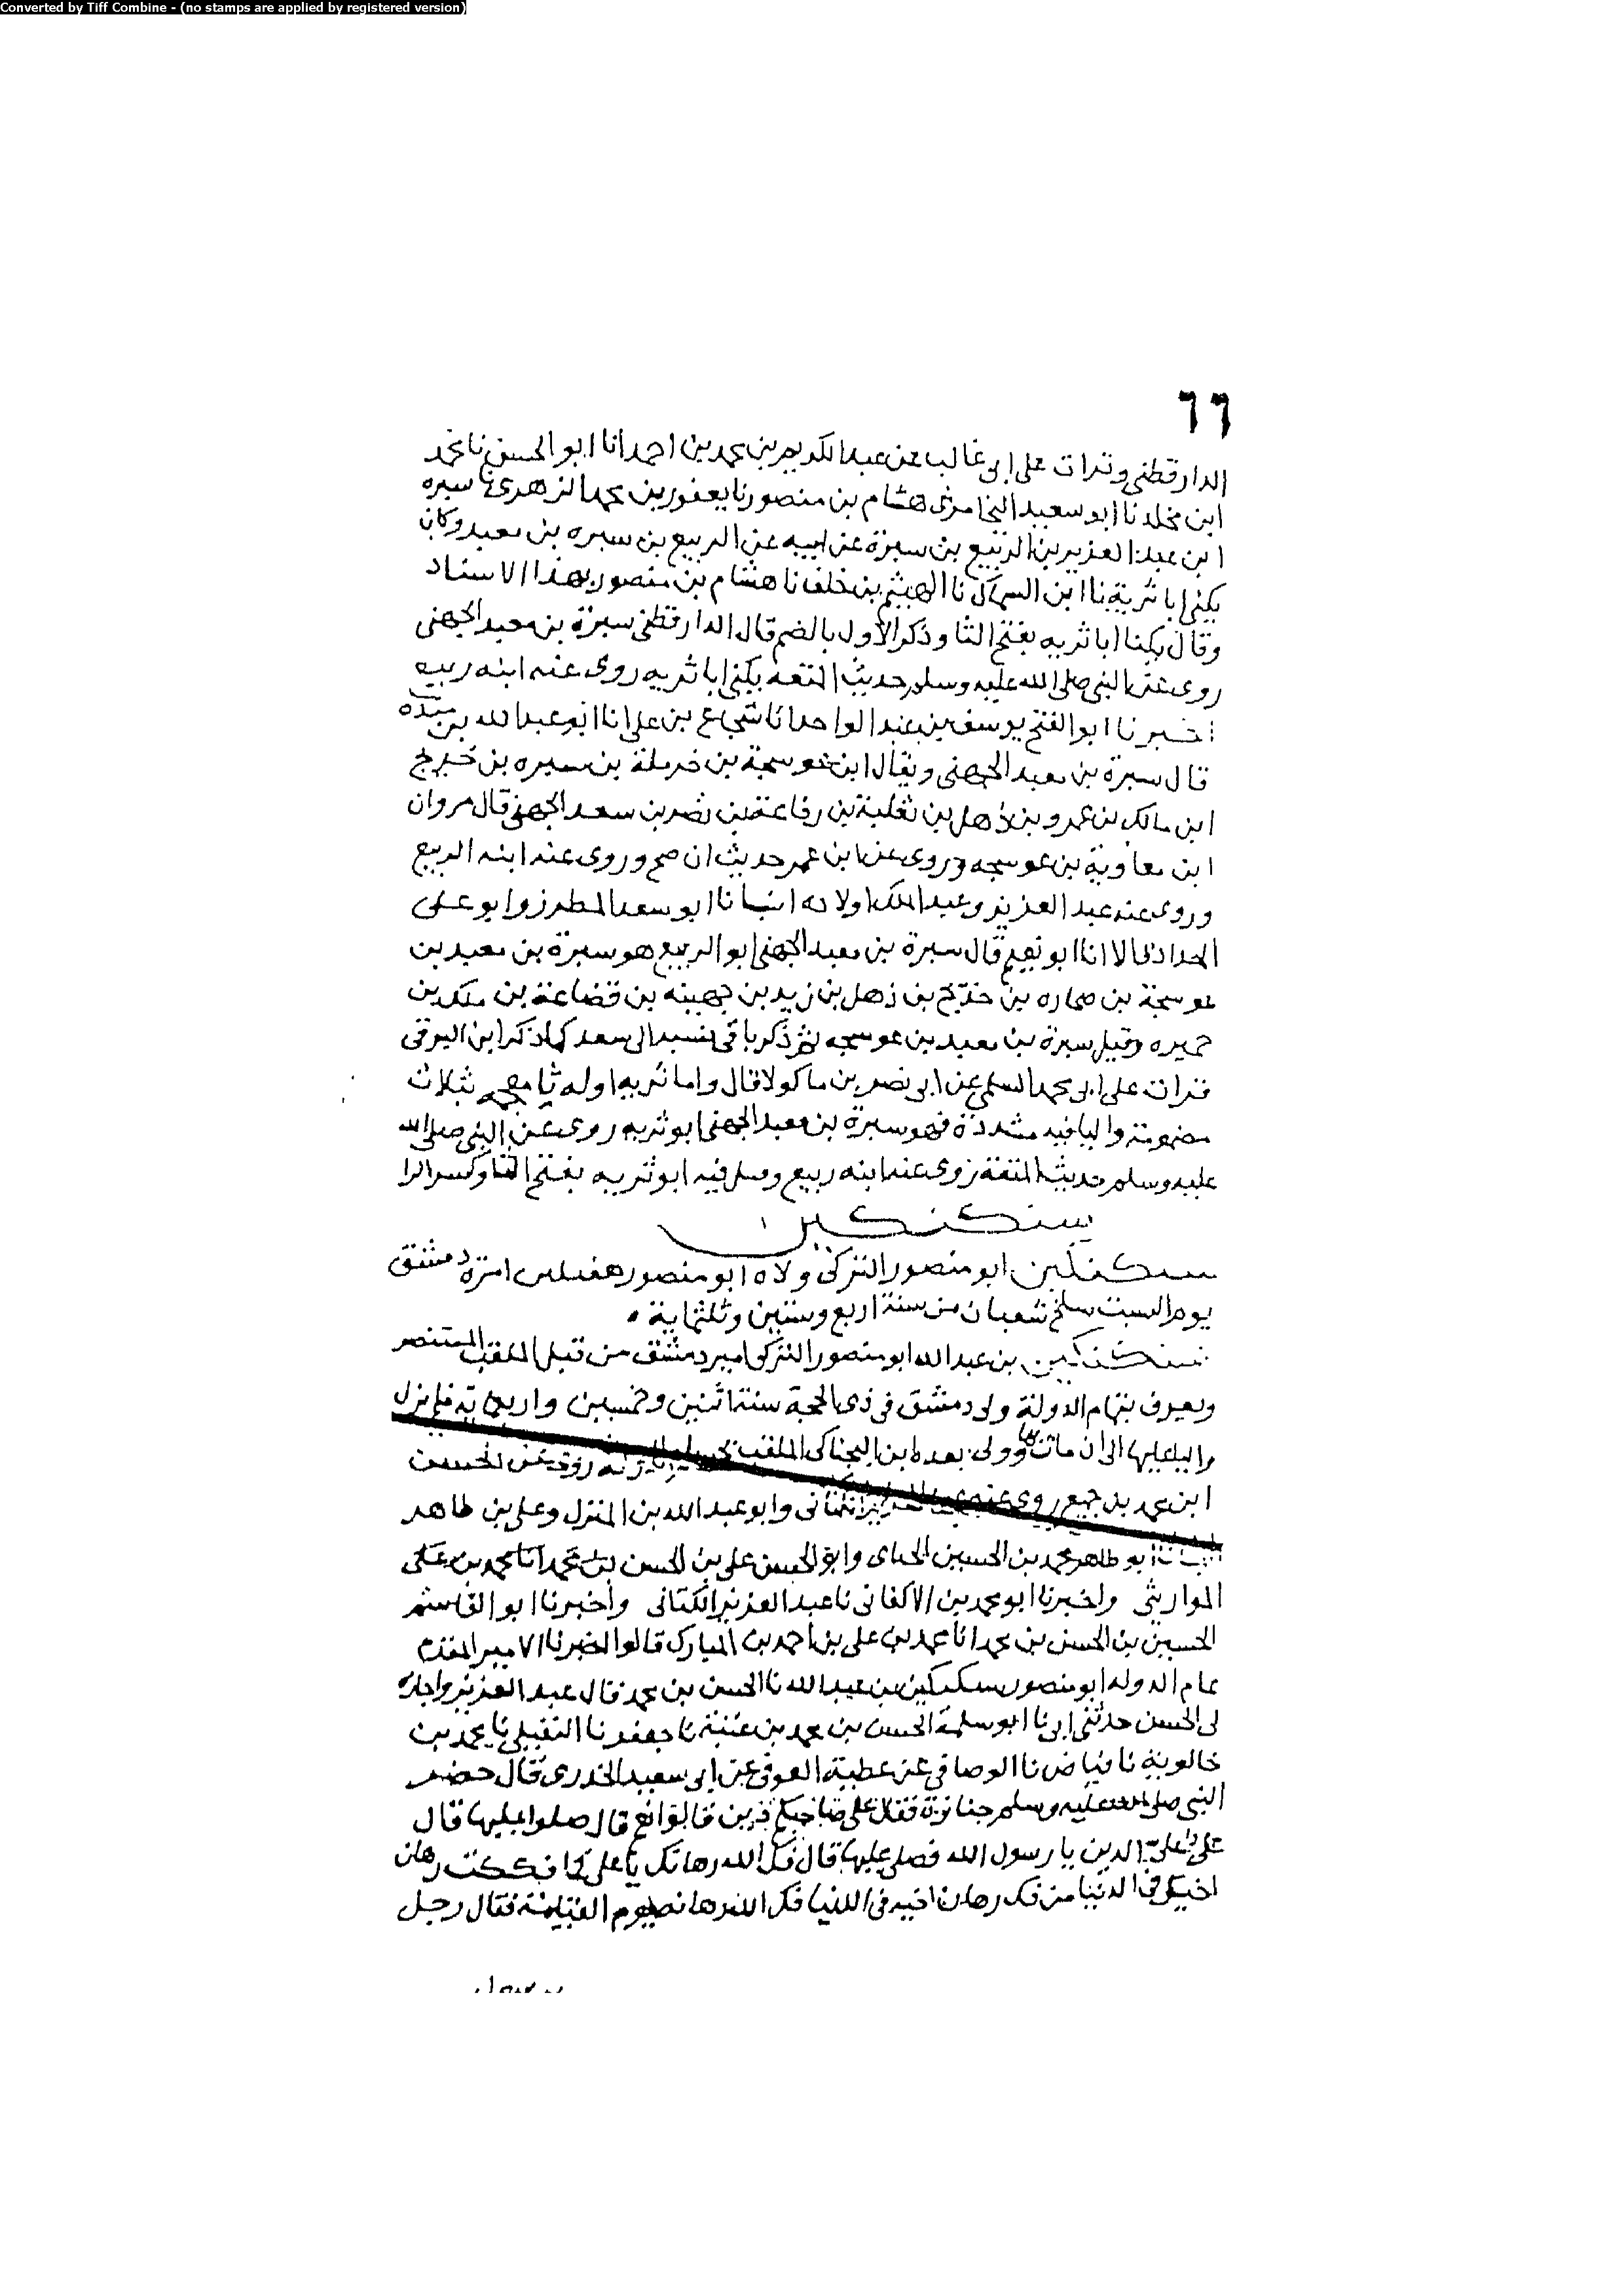 Converted by Tiff Combine - (no stamps are applied by registered version)
٦٦
الدارقطني وقرات على ابي غالب عن عبد الكريم بن محمد بن احمد انا ابو الحسن نا محمد
ابن مخلد نا ابو سعيد هشام بن منصور نا يعقوب بن محمد الزهري نا سبره
ابن عبد العزيز بن الربيع بن سبرة عن ابيه عن الربيع بن سبره بن معبد وكان
يكنى ابا ثرية نا ابن السماك نا الهيثم بن خلف نا هشام بن منصور بهذا الاسناد
وقال يكنا ابا ثريه بفتح الثا وذكر الاول بالضم قال الدارقطني سبرة بن معبد الجهني
روى عن النبي صلى الله عليه وسلم حديث المتعه يكنى ابا ثريه روى عنه ابنه ربيع
اخبرنا ابو الفتح يوسف بن عبد الواحد انا شجاع بن علي انا ابو عبد الله بن منده
قال سبرة بن معبد الجهني ويقال ابن عوسجة بن حرملة بن سبره بن خديج
ابن مالك بن عمرو بن ذهل بن ثعلبة بن رفاعة بن نصر بن سعد الجهني قال مروان
ابن معاوية بن عوسجه وروى عن ابن عمر حديث ان صح وروى عنه ابنه الربيع
وروى عنه عبد العزيز وعبد الملك اولاده انبانا ابو سعد المطرز وابو علي
الحداد قالا انا ابو نعيم قال سبرة بن معبد الجهني ابو الربيع هو سبرة بن معبد بن
عوسجة بن صحاره بن خديج بن ذهل بن زيد بن جهينه بن قضاعة بن ملك بن
حميره وقيل سبرة بن معبد بن عوسجه ثم ذكر باقي نسبه الى سعد كما ذكر ابن البرقي
قرات على ابي محمد السلمي عن ابي نصر بن ماكولا قال واما ثريه اوله ثا معجمه بثلاث
مضمومة واليا فيه مشددة فهو سبرة بن معبد الجهني ابو ثريه روى عن النبي صلى الله
عليه وسلم حديث المتعة روى عنه ابنه ربيع وقيل فيه ابو ثريه بفتح الثا وكسر الرا
سبكتكين
سبكتكين ابو منصور التركي ولاه ابو منصور امرة دمشق
يوم السبت سلخ شعبان من سنة اربع وستين وثلثماية
سبكتكين بن عبد الله ابو منصور التركي امير دمشق من قبل الملقب المستنصر
ويعرف بتمام الدولة ولي دمشق في ذي الحجة سنة اثنين وخمسين واربعماية فلم يزل
واليا عليها الى ان مات بها وولى بعده ابن البجناكي الملقب روى عن الحسن
ابن محمد بن جميع روى عنه عبد العزيز الكتاني وابو عبد الله بن المنزل وعلي بن طاهر
انبانا ابو طاهر محمد بن الحسين الحناي وابو الحسن علي بن الحسن بن محمد انا محمد بن علي
المواريثي واخبرنا ابو محمد بن الاكفاني نا عبد العزيز الكتاني واخبرنا ابو القاسم
الحسين بن الحسن بن محمد انا محمد بن علي بن احمد بن المبارك قالوا اخبرنا الامير المقدم
تمام الدوله ابو منصور سبكتكين بن عبد الله نا الحسن بن محمد قال عبد العزيز واجازه
لي الحسن حدثني ابي نا ابو سلمة الحسن بن محمد بن عتبة نا جعفر نا النفيلي نا محمد بن
خالويه نا فياض نا الوصافي عن عطية العوفي عن ابي سعيد الخدري قال حضر
النبي صلى الله عليه وسلم جنازة فقال على صاحبكم دين قالوا نعم قال صلوا عليها قال
علي علي الدين يا رسول الله فصلى عليها قال فك الله رهانك يا علي كما فككت رهان
اخيك في الدنيا من فك رهان اخيه في الدنيا فك الله رهانه يوم القيامة فقال رجل